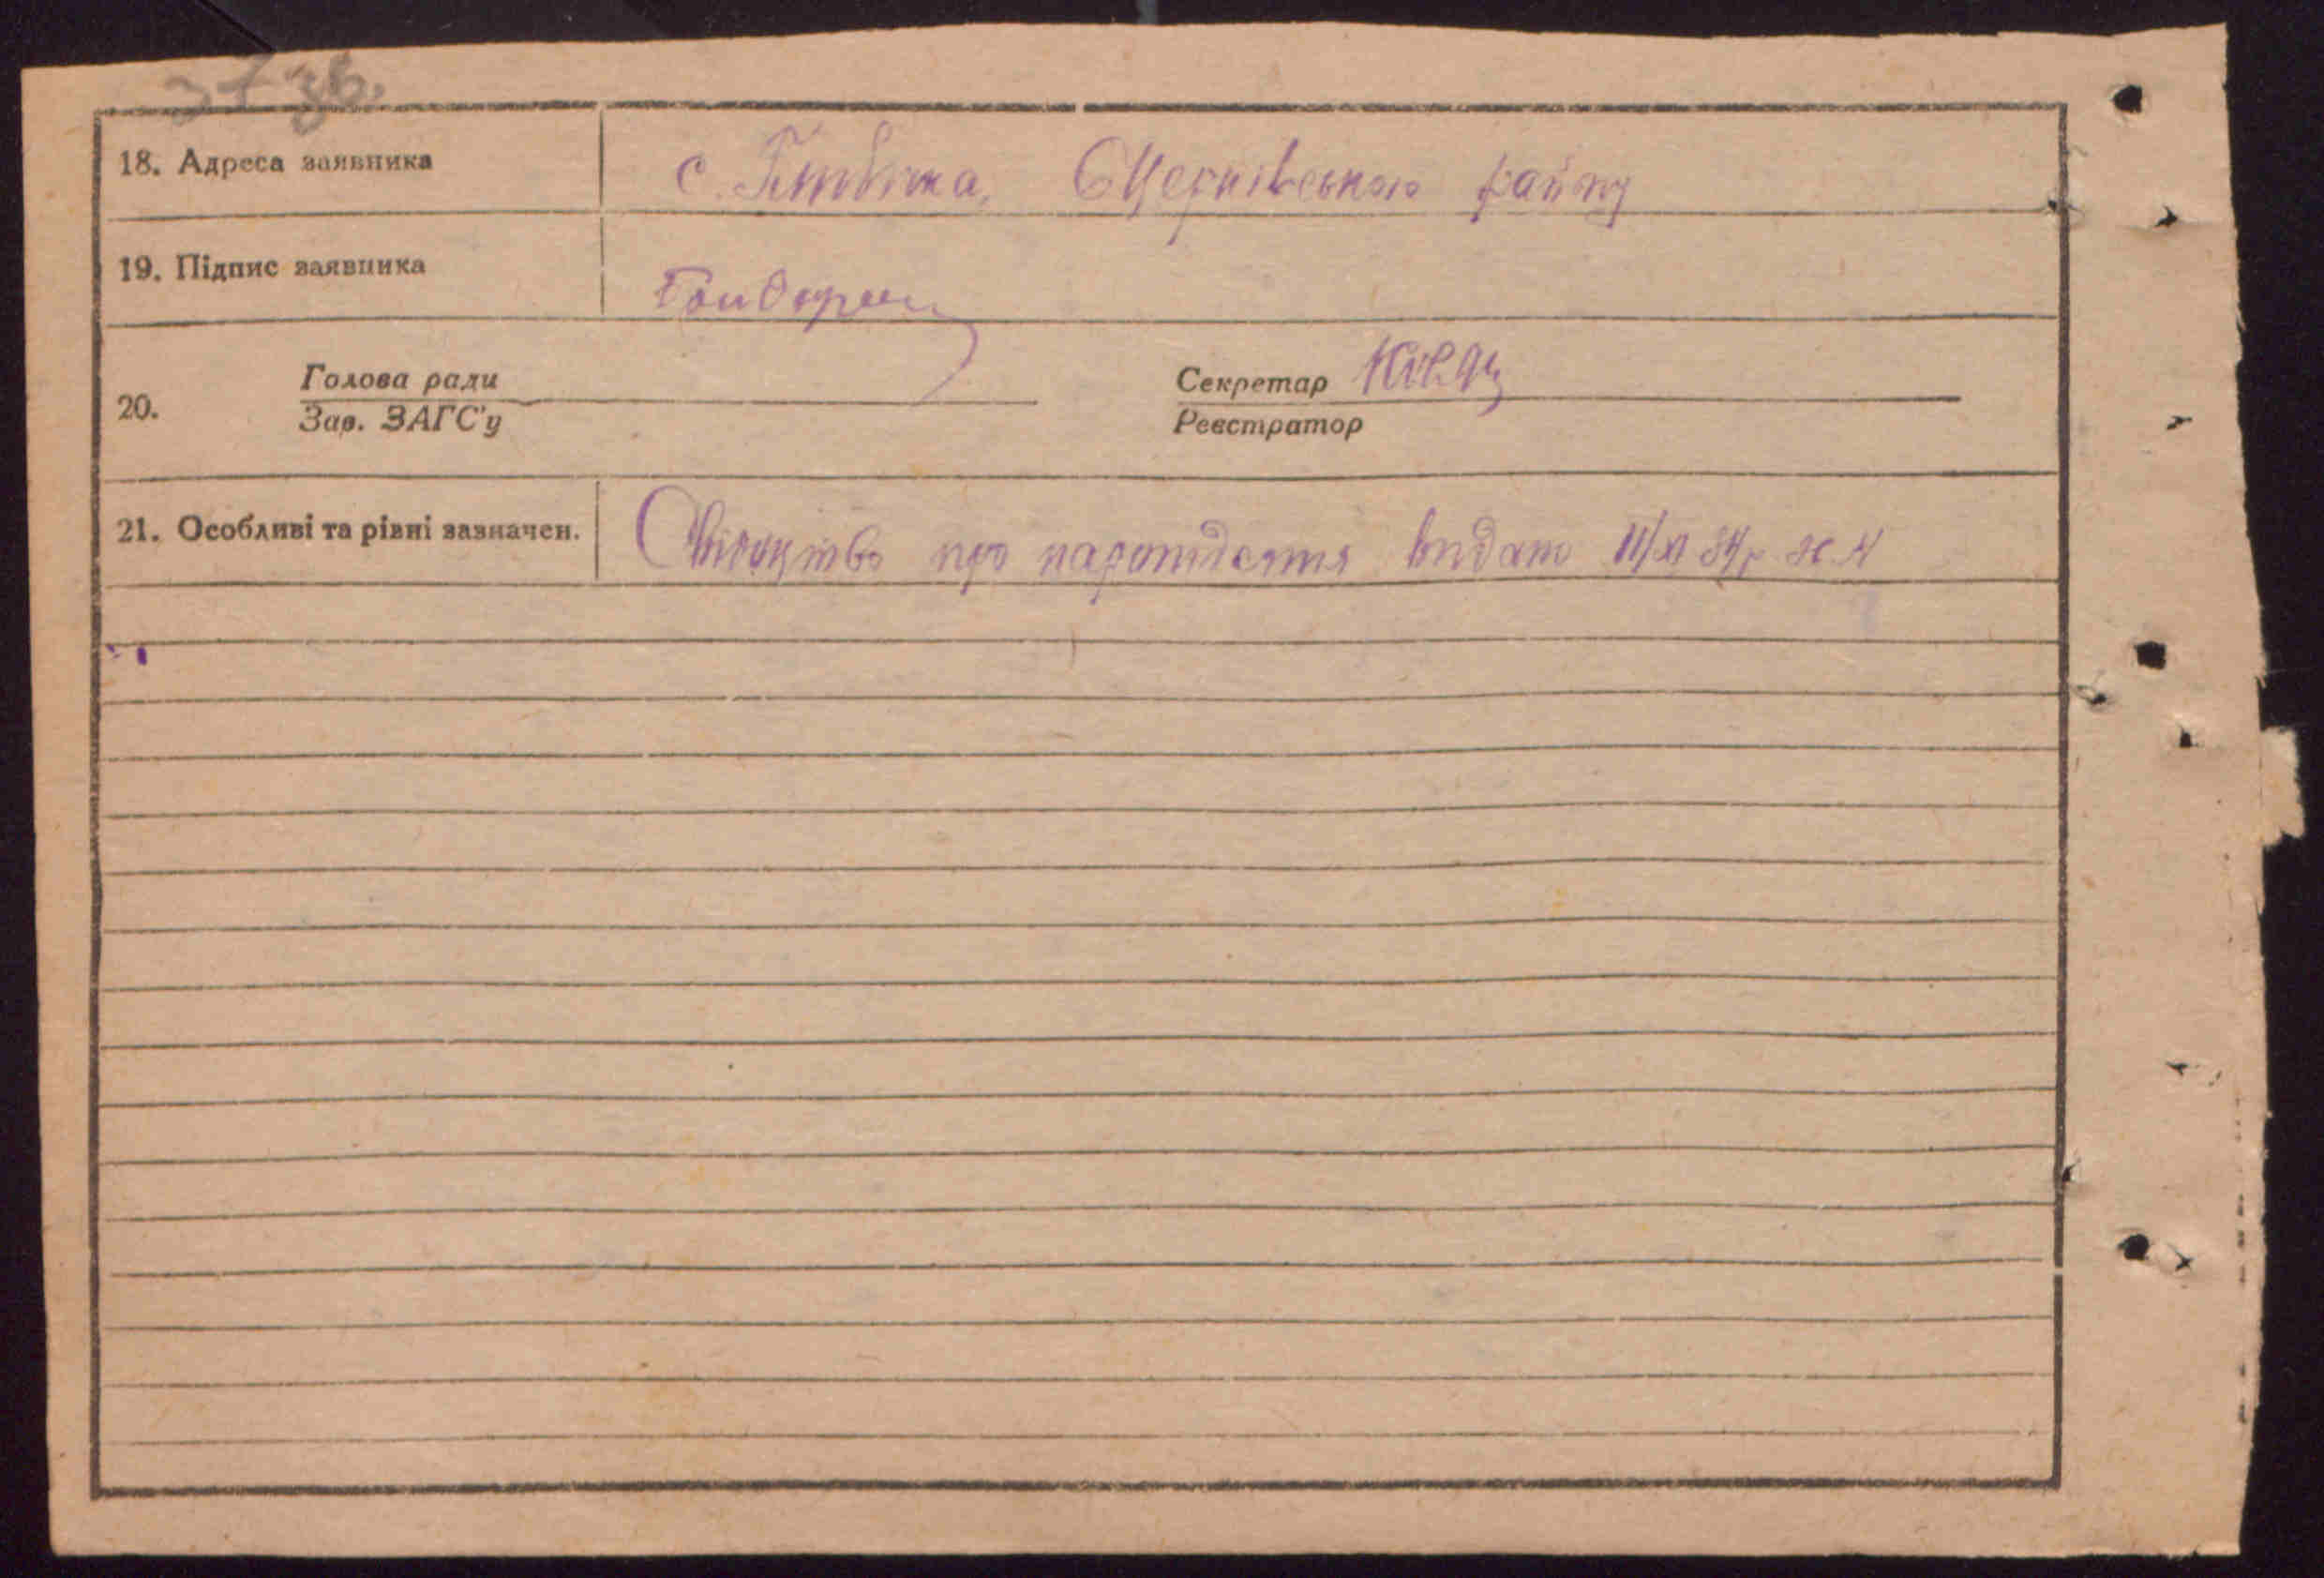 37 зв.
18. Адреса заявника с. району
19. Підпис заявника
Голова ради Секретар
20. Зав. ЗАГС'у Реєстратор
21. Особливі та рівні зазначен. Свідоцтво про народження видано 11/XI 34р